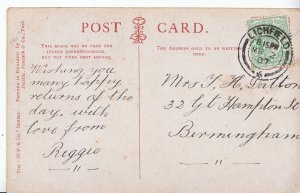 POST CARD.
THIS SPACE MAY BE USED FOR
INLAND CORRESPONDENCE,
BUT NOT WHEN SENT ABROAD.
THE ADDRESS ONLY TO BE WRITTEN HERE.
LICHFIELD
07
Wishing you
many happy
returns of the
day, with
love from
Reggie
Mrs T. H. Dalton
32 Gt Hampton St
Birmingham